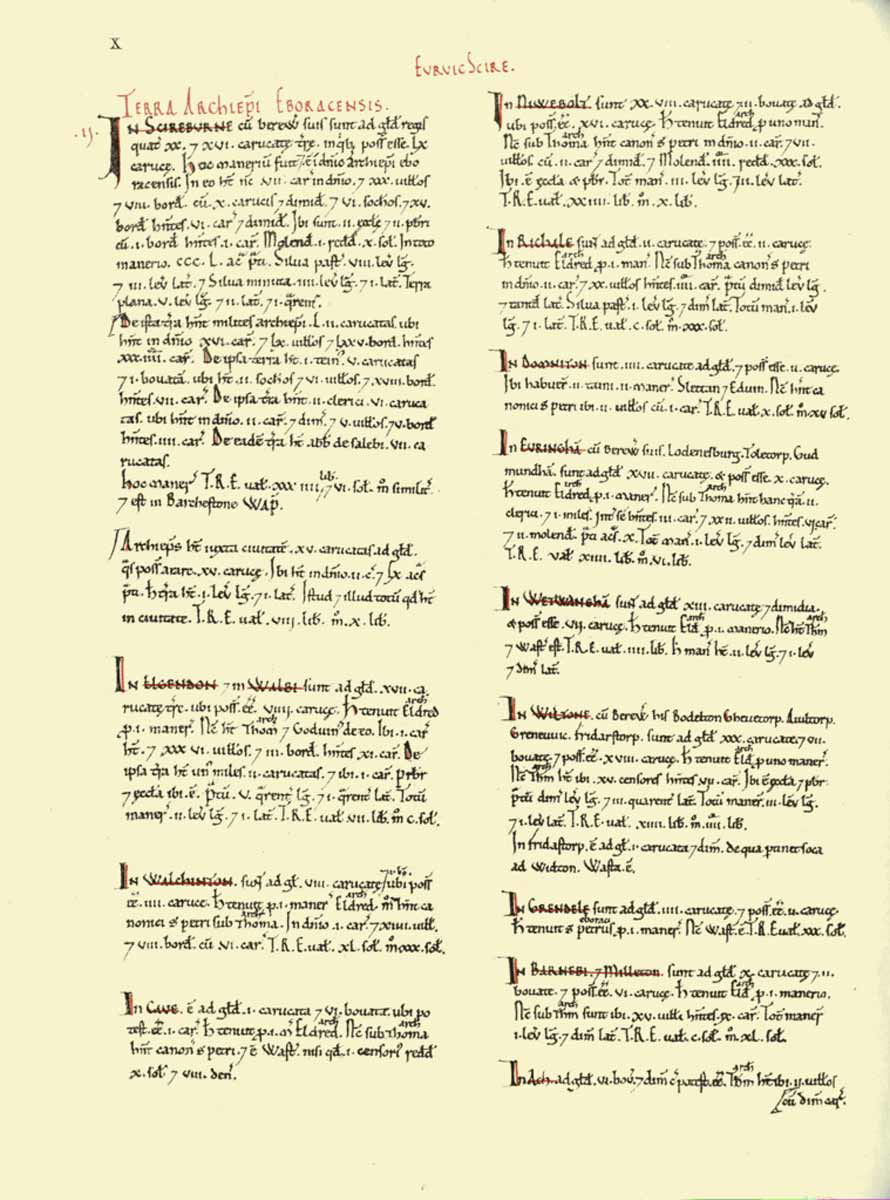 X
EURVICSCIRE.
TERRA ARCHIEP̃I EBORACENSIS.
.ij. IN SCIREBURNE cũ bereẘ suis sunt ad gl̃d regis
quat̃ xx. ⁊ xvi. carucatę t̃rę. in q̇ƀ poss̃ esse. lx
carucę. Hoc maneriũ fuit ⁊ ẽ in dñio archiep̃i ebo
racensis. In eo ht̃ ñc vii. car̃ in dñio. ⁊ xxx. uiłłos
⁊ viii. bord̃. cũ. x. carucis ⁊ dimid̃. ⁊ vi. sochos ⁊ xv.
bord̃ hñtes. vi. car̃ ⁊ dimid̃. Ibi sunt. ii. ęccłę ⁊ ii. pƀri
cũ. i. bord̃ hñtes. i. car̃. Molend̃. i. redd̃. x. sol̃. In toto
manerio. ccc. L. ac̃ p̃ti. Silua past̃. viii. leṽ lg̃.
⁊ iii. leṽ lat̃. ⁊ Silua minuta. iiii. leṽ lg̃. ⁊ i. lat̃. Terra
plana. v. leṽ lg̃. ⁊ ii. lat̃. ⁊ i. qrent̃.
De ista t̃ra hñt milites archiep̃i. L. ii. carucatas. ubi
hñt in dñio. xvi. car̃. ⁊ lx. uiłłos ⁊ lxxv. bord. hñtes
xxx.iiii. car̃. De ipsa terra ht̃. i. tein̾. v. carucatas
⁊ i. bouatã. ubi ht̃. ii. sochos ⁊ vi. uiłłos. ⁊ xviii. bord̃.
hñtes. vii. car̃. De ipsa t̃ra hñt. ii. clerici. vi. caruca
tas. ubi hñt in dñio. ii. car̃. ⁊ dim̃. ⁊ v. uiłłos. ⁊ v. bord̃
hñtes. iiii. car̃. De eadẽ t̃ra ht̃ abb̃ de salebi. vii. ca
rucatas.
Hoc maner̃ T.R.E. ual̃. xxxiiii. lib. ⁊ vi. sol̃. m̊ similit̃.
⁊ est in Barchestone Wap̃.
Archiep̃s ht̃ iuxta ciuitatẽ. xv. carucatas ad gl̃d.
q̃s poss̃ arare. xv. carucę. Ibi ht̃ in dñio. ii. c̃. ⁊ lx. ac̃s
p̃ti. H̃ t̃ra ht̃. i. leṽ lg̃. ⁊ i. lat̃. Istud ⁊ illud totũ qd̃ ht̃
in ciuitate. T.R.E. ual̃. viii. lib̃. m̊. x. lib̃.
IN ELGENDON ⁊ in WALBI sunt ad gl̃d. xvii. ca
rucatę t̃rę. ubi poss̃. ẽẽ. viiii. carucę. H̃ tenuit Eldred arch
ꝑ. i. maner̃. Ñc ht̃ Thom̃ arch ⁊ Goduin̾ de eo. Ibi. i. car̃
ht̃. ⁊ xxxvi. uiłłos. ⁊ iii. bord̃. hñtes xi. car̃. De
ipsa t̃ra ht̃ un̾ miles. ii. carucatas. ⁊ ibi. i. car̃. Pƀr
⁊ ęccła ibi. ẽ. P̃tũ. v. q̃renc̃ lg̃. ⁊ i. q̃renc̃ lat̃. Totũ
maner̃. ii. leṽ lg̃. ⁊ i. lat̃. T.R.E. ual̃ vii. lib. m̊ c. sol̃.
IN WALCHINTON. sun̾ ad gl̃. viii. carucatę ubi poss̃
ẽẽ. iiii. carucę. H̃ tenuit ꝑ. i. maner̃ Eldred̃ arch. m̊ hñt ca
nonici s̃ petri sub Thoma arch. In dñio. i. car̃. ⁊ xiiii. uiłł.
⁊ viii. bord̃. cũ vi. car̃. T.R.E. ual̃. xl. sol̃. m̊ xxx. sol̃.
IN CAVE. ẽ ad gl̃d. i. carucata ⁊ vi. bouatæ. ubi po
test. ẽẽ. i. car̃. H̃ tenuit ꝑ. i. m̊ Eldred̃ arch. Ñc sub Thoma arch
hñt canon̾ s̃ petri. ⁊ ẽ Wast̃. nisi qd̃. i. censori̾ redd̃
x. sol̃. ⁊ viii. den̾.
IN NIWEBOLT. sunt xx.viii. carucatę ⁊ ii. bouatę ad gl̃d.
ubi poss̃. ẽẽ. xvi. carucę. H̃ tenuit Eldred̃ arch ꝑ uno man̾.
Ñc sub Thoma arch hñt canoñ s̃ petri in dñio. ii. car̃. ⁊ vii.
uiłłos. cũ. ii. car̃ ⁊ dimid̃. ⁊ Molend̃. iiii. redd̃. xxx. sol̃.
Ibi. ẽ. ęccła & pƀr. Tot̃ man̾. iii. leṽ lg̃. ⁊ ii. leṽ lat̃.
T.R.E. ual̃. xxiiii. lib̃. m̊. x. lib̃.
IN RICHALE sun̾ ad gl̃d. ii. carucatę. ⁊ poss̃ ẽẽ. ii. carucę.
H̃ tenuit Eldred̃ arch. ꝑ. i. man̾. Ñc sub Thoma arch canoñ s̃ petri
in dñio. ii. car̃. ⁊ xx. uiłłos hñtes. iiii. car̃. P̃tũ dimid̃ leṽ lg̃.
⁊ tantd̃ lat̃. Silua past̃. i. leṽ lg̃. ⁊ dim̃ lat̃. Totũ man̾. i. leṽ
lg̃. ⁊ i. lat̃. T.R.E. ual̃. c. sol̃. m̊. xxx. sol̃.
IN DOMNITON sunt. iiii. carucatę ad gl̃d. ⁊ poss̃ esse. ii. carucę.
Ibi habuer̃. ii. taini. ii. maner̃. Slettan ⁊ Eduin. Ñc hñt ca
nonici s̃ petri ibi. ii. uiłłos cũ. i. car̃. T.R.E. ual̃. x. sol̃. m̊ xv sol̃.
IN EURINGHÃ cũ Bereẘ suis. Lodenesburg. Toletorp. Gud
mundhã. sunt ad gl̃d. xvii. carucatę. & poss̃ esse. x. carucę.
H̃ tenuit Eldred̃ arch. ꝑ. i. maner̃. Ñc sub Thoma arch hñt hanc t̃rã. ii.
clerici. ⁊ i. miles. Int̃ se hñtes. iii. car̃. ⁊ xxii. uiłłos. hñtes. vi. car̃.
⁊ ii. molend̃. p̃ti ac̃s. x. Tot̃ man̾. i. leṽ lg̃. ⁊ dim̃ leṽ lat̃.
T.R.E. ual̃ xiiii. lib̃. m̊. vi. lib̃.
IN WETWANGHÃ sun̾ ad gl̃d xiii. carucatę ⁊ dimidia.
& poss̃ esse. vii. carucę. H̃ tenuit Eld̃ arch. ꝑ. i. manerio. Ñc ht̃ Thm̃ arch
⁊ Wast̃ est. T.R.E. ual̃. iiii. lib̃. H̃ man̾ ht̃. ii. leṽ lg̃. ⁊ i. leṽ
⁊ dim̃ lat̃.
IN WILTONE. cũ Bereẘ his Bodelton Gheuetorp. Auiltorp.
Greneuuic. Fridarstorp. sunt ad gl̃d xxx. carucatę ⁊ vii.
bouatę. ⁊ poss̃. ẽẽ. xviii. carucę. H̃ tenuit Eld̃ arch ꝑ uno maner̃.
Ñc Thm̃ arch ht̃ ibi. xv. censores hñtes. vii. car̃. Ibi ẽ ęccła ⁊ pƀr.
P̃tũ dim̃ leṽ lg̃. ⁊ iii. quarent̃ lat̃. Totũ maner̃. iii. leṽ lg̃.
⁊ i. leṽ lat̃. T.R.E. ual̃. xiiii. lib̃. m̊. iiii. lib̃.
In Fridastorp. ẽ ad gl̃d. i. carucata ⁊ dim̃. de qua ꝑtinet soca
ad Widton. Wasta. ẽ.
IN GRENDELE sunt ad gl̃d. iiii. carucatę. ⁊ poss̃. ẽẽ. ii. carucę.
H̃ tenuit s̃ petrus eborac̃. ꝑ. i. maner̃. Ñc Wast̃. ẽ. T.R.E ual̃. xxx. sol̃.
IN BARNEBI. ⁊ Milleton. sunt ad gl̃d x. carucatę. ⁊ ii.
bouatę. ⁊ poss̃. ẽẽ. vi. carucę. H̃ tenuit Eld̃ arch. ꝑ. i. manerio.
Ñc sub Thm̃ arch sunt ibi. xv. uiłłi. hñtes. x. car̃. Tot̃ maner̃
i. leṽ lg̃. ⁊ dim̃ lat̃. T.R.E. ual̃. c. sol̃. m̊. xl. sol̃.
IN Ach. ad gl̃d. vi. boũ. ⁊ dim̃ c̃ potest. ẽẽ. Thm̃ arch ht̃ ibi. ii. uiłłos
cũ dim̃ car̃.